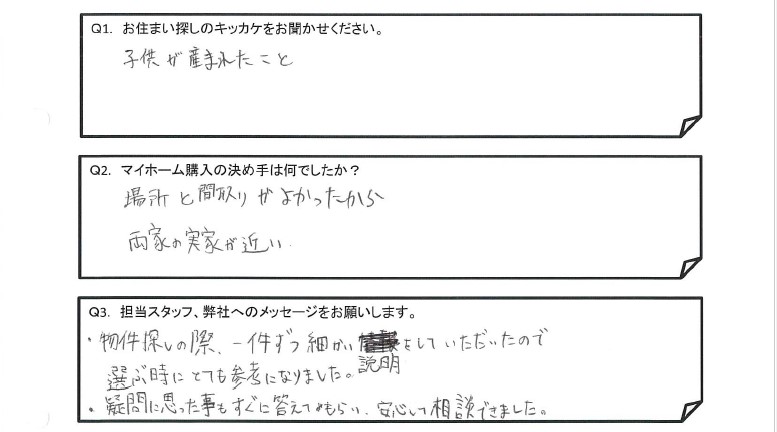 Q1. お住まい探しのキッカケをお聞かせください。
子供が産まれたこと
Q2. マイホーム購入の決め手は何でしたか？
場所と間取りがよかったから
両家の実家が近い.
Q3. 担当スタッフ、弊社へのメッセージをお願いします。
・物件探しの際、一件ずつ細かい説明をしていただいたので
選ぶ時にとても参考になりました。
・疑問に思った事もすぐに答えてもらい、安心して相談できました。